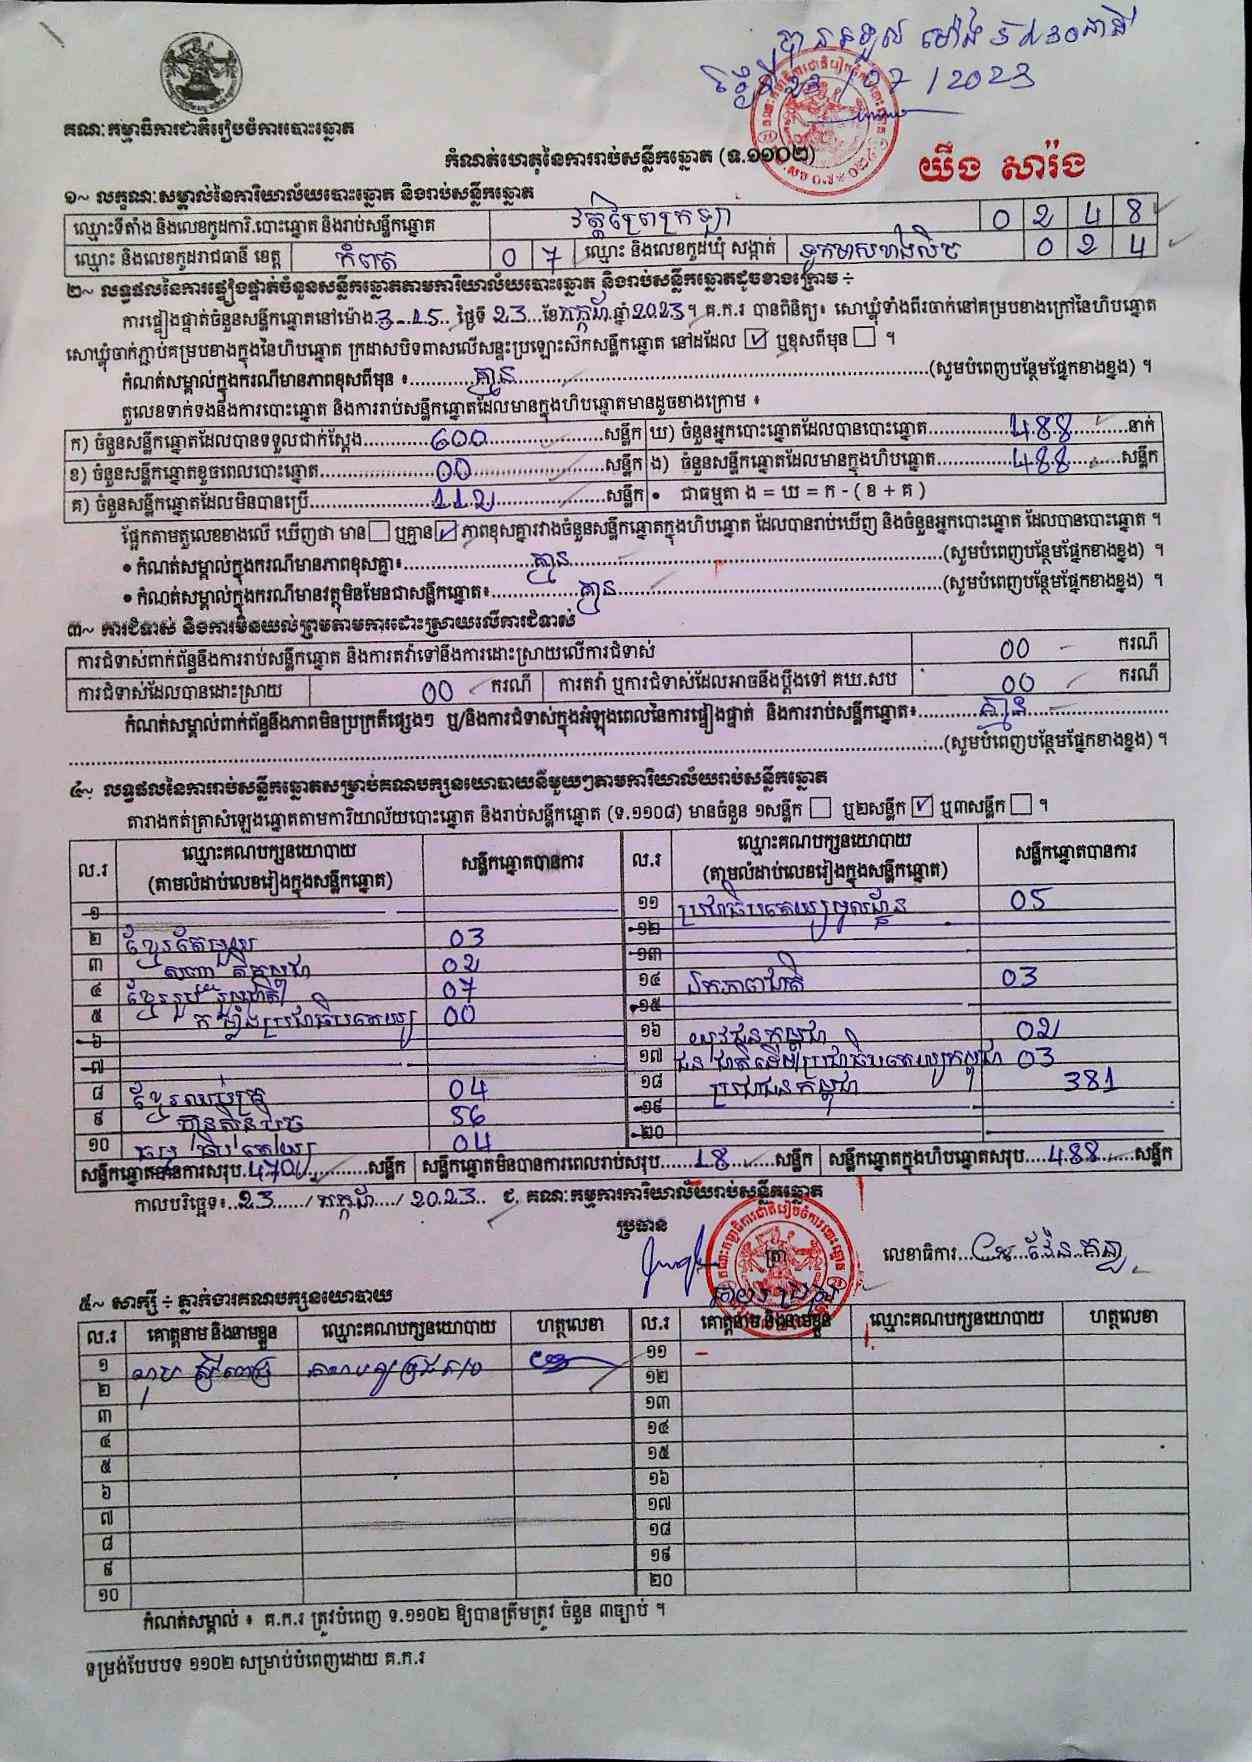 បានទទួល ម៉ោង 5 និង 30 នាទី
ថ្ងៃទី 23 / 07 / 2023
គណៈកម្មាធិការជាតិរៀបចំការបោះឆ្នោត
កំណត់ហេតុនៃការរាប់សន្លឹកឆ្នោត (ទ.១១០២)
យឹង សារ៉ង
១~ លក្ខណៈសម្គាល់នៃការិយាល័យបោះឆ្នោត និងរាប់សន្លឹកឆ្នោត
ឈ្មោះទីតាំង និងលេខកូដការិ.បោះឆ្នោត និងរាប់សន្លឹកឆ្នោត វត្តព្រៃក្រឡា 0 2 4 8
ឈ្មោះ និងលេខកូដរាជធានី ខេត្ត កំពត 0 7 ឈ្មោះ និងលេខកូដឃុំ សង្កាត់ ទូកមាសខាងលិច 0 2 4
២~ លទ្ធផលនៃការផ្ទៀងផ្ទាត់ចំនួនសន្លឹកឆ្នោតតាមការិយាល័យបោះឆ្នោត និងរាប់សន្លឹកឆ្នោតដូចខាងក្រោម ÷
ការផ្ទៀងផ្ទាត់ចំនួនសន្លឹកឆ្នោតនៅម៉ោង 3-15 ថ្ងៃទី 23 ខែ កក្កដា ឆ្នាំ 2023 ។ គ.ក.រ បានពិនិត្យ៖ សោឃ្លុំទាំងពីរចាក់នៅគម្របខាងក្រៅនៃហិបឆ្នោត
សោឃ្លុំចាក់ភ្ជាប់គម្របខាងក្នុងនៃហិបឆ្នោត ក្រដាសបិទពាសលើសន្ទះប្រឡោះស៊កសន្លឹកឆ្នោត នៅដដែល ☑ ឬខុសពីមុន ☐ ។
កំណត់សម្គាល់ក្នុងករណីមានភាពខុសពីមុន ៖ គ្មាន (សូមបំពេញបន្ថែមផ្នែកខាងខ្នង) ។
តួលេខទាក់ទងនឹងការបោះឆ្នោត និងការរាប់សន្លឹកឆ្នោតដែលមានក្នុងហិបឆ្នោតមានដូចខាងក្រោម ៖
ក) ចំនួនសន្លឹកឆ្នោតដែលបានទទួលជាក់ស្តែង 600 សន្លឹក ឃ) ចំនួនអ្នកបោះឆ្នោតដែលបានបោះឆ្នោត 488 នាក់
ខ) ចំនួនសន្លឹកឆ្នោតខូចពេលបោះឆ្នោត 00 សន្លឹក ង) ចំនួនសន្លឹកឆ្នោតដែលមានក្នុងហិបឆ្នោត 488 សន្លឹក
គ) ចំនួនសន្លឹកឆ្នោតដែលមិនបានប្រើ 112 សន្លឹក • ជាធម្មតា ង = ឃ = ក - ( ខ + គ )
ផ្អែកតាមតួលេខខាងលើ ឃើញថា មាន ☐ ឬគ្មាន ☑ ភាពខុសគ្នារវាងចំនួនសន្លឹកឆ្នោតក្នុងហិបឆ្នោត ដែលបានរាប់ឃើញ និងចំនួនអ្នកបោះឆ្នោត ដែលបានបោះឆ្នោត ។
• កំណត់សម្គាល់ក្នុងករណីមានភាពខុសគ្នា៖ គ្មាន (សូមបំពេញបន្ថែមផ្នែកខាងខ្នង) ។
• កំណត់សម្គាល់ក្នុងករណីមានវត្ថុមិនមែនជាសន្លឹកឆ្នោត៖ គ្មាន (សូមបំពេញបន្ថែមផ្នែកខាងខ្នង) ។
៣~ ការជំទាស់ និងការមិនយល់ព្រមតាមការដោះស្រាយលើការជំទាស់
ការជំទាស់ពាក់ព័ន្ធនឹងការរាប់សន្លឹកឆ្នោត និងការតវ៉ាទៅនឹងការដោះស្រាយលើការជំទាស់ 00 ករណី
ការជំទាស់ដែលបានដោះស្រាយ 00 ករណី ការតវ៉ា ឬការជំទាស់ដែលអាចនឹងប្តឹងទៅ គឃ.សប 00 ករណី
កំណត់សម្គាល់ពាក់ព័ន្ធនឹងភាពមិនប្រក្រតីផ្សេងៗ ឬ/និងការជំទាស់ក្នុងអំឡុងពេលនៃការផ្ទៀងផ្ទាត់ និងការរាប់សន្លឹកឆ្នោត៖ គ្មាន
(សូមបំពេញបន្ថែមផ្នែកខាងខ្នង) ។
៤~ លទ្ធផលនៃការរាប់សន្លឹកឆ្នោតសម្រាប់គណបក្សនយោបាយនីមួយៗតាមការិយាល័យរាប់សន្លឹកឆ្នោត
តារាងកត់ត្រាសំឡេងឆ្នោតតាមការិយាល័យបោះឆ្នោត និងរាប់សន្លឹកឆ្នោត (ទ.១១០៨) មានចំនួន ១សន្លឹក ☐ ឬ២សន្លឹក ☑ ឬ៣សន្លឹក ☐ ។
ល.រ ឈ្មោះគណបក្សនយោបាយ (តាមលំដាប់លេខរៀងក្នុងសន្លឹកឆ្នោត) សន្លឹកឆ្នោតបានការ ល.រ ឈ្មោះគណបក្សនយោបាយ (តាមលំដាប់លេខរៀងក្នុងសន្លឹកឆ្នោត) សន្លឹកឆ្នោតបានការ
១ ១១ ប្រជាធិបតេយ្យមូលដ្ឋាន 05
២ ខ្មែរតែមួយ 03 ១២
៣ សញ្ជាតិកម្ពុជា 02 ១៣
៤ ខ្មែររួបរួមជាតិ 07 ១៤ ឯកភាពជាតិ 03
៥ កម្លាំងប្រជាធិបតេយ្យ 00 ១៥
៦ ១៦ យុវជនកម្ពុជា 02
៧ ១៧ ជនជាតិដើមប្រជាធិបតេយ្យកម្ពុជា 03
៨ ខ្មែរឈប់ក្រ 04 ១៨ ប្រជាជនកម្ពុជា 381
៩ ហ្វ៊ុនស៊ិនប៉ិច 56 ១៩
១០ ធម្មាធិបតេយ្យ 04 ២០
សន្លឹកឆ្នោតបានការសរុប 470 សន្លឹក សន្លឹកឆ្នោតមិនបានការពេលរាប់សរុប 18 សន្លឹក សន្លឹកឆ្នោតក្នុងហិបឆ្នោតសរុប 488 សន្លឹក
កាលបរិច្ឆេទ៖ 23 / កក្កដា / 2023 ជ. គណៈកម្មការការិយាល័យរាប់សន្លឹកឆ្នោត
ប្រធាន
ត្រា
លេខាធិការ
៥~ សាក្សី ÷ ភ្នាក់ងារគណបក្សនយោបាយ
ល.រ គោត្តនាម និងនាមខ្លួន ឈ្មោះគណបក្សនយោបាយ ហត្ថលេខា ល.រ គោត្តនាម និងនាមខ្លួន ឈ្មោះគណបក្សនយោបាយ ហត្ថលេខា
១ ១១
២ ១២
៣ ១៣
៤ ១៤
៥ ១៥
៦ ១៦
៧ ១៧
៨ ១៨
៩ ១៩
១០ ២០
កំណត់សម្គាល់ ៖ គ.ក.រ ត្រូវបំពេញ ទ.១១០២ ឱ្យបានត្រឹមត្រូវ ចំនួន ៣ច្បាប់ ។
ទម្រង់បែបបទ ១១០២ សម្រាប់បំពេញដោយ គ.ក.រ